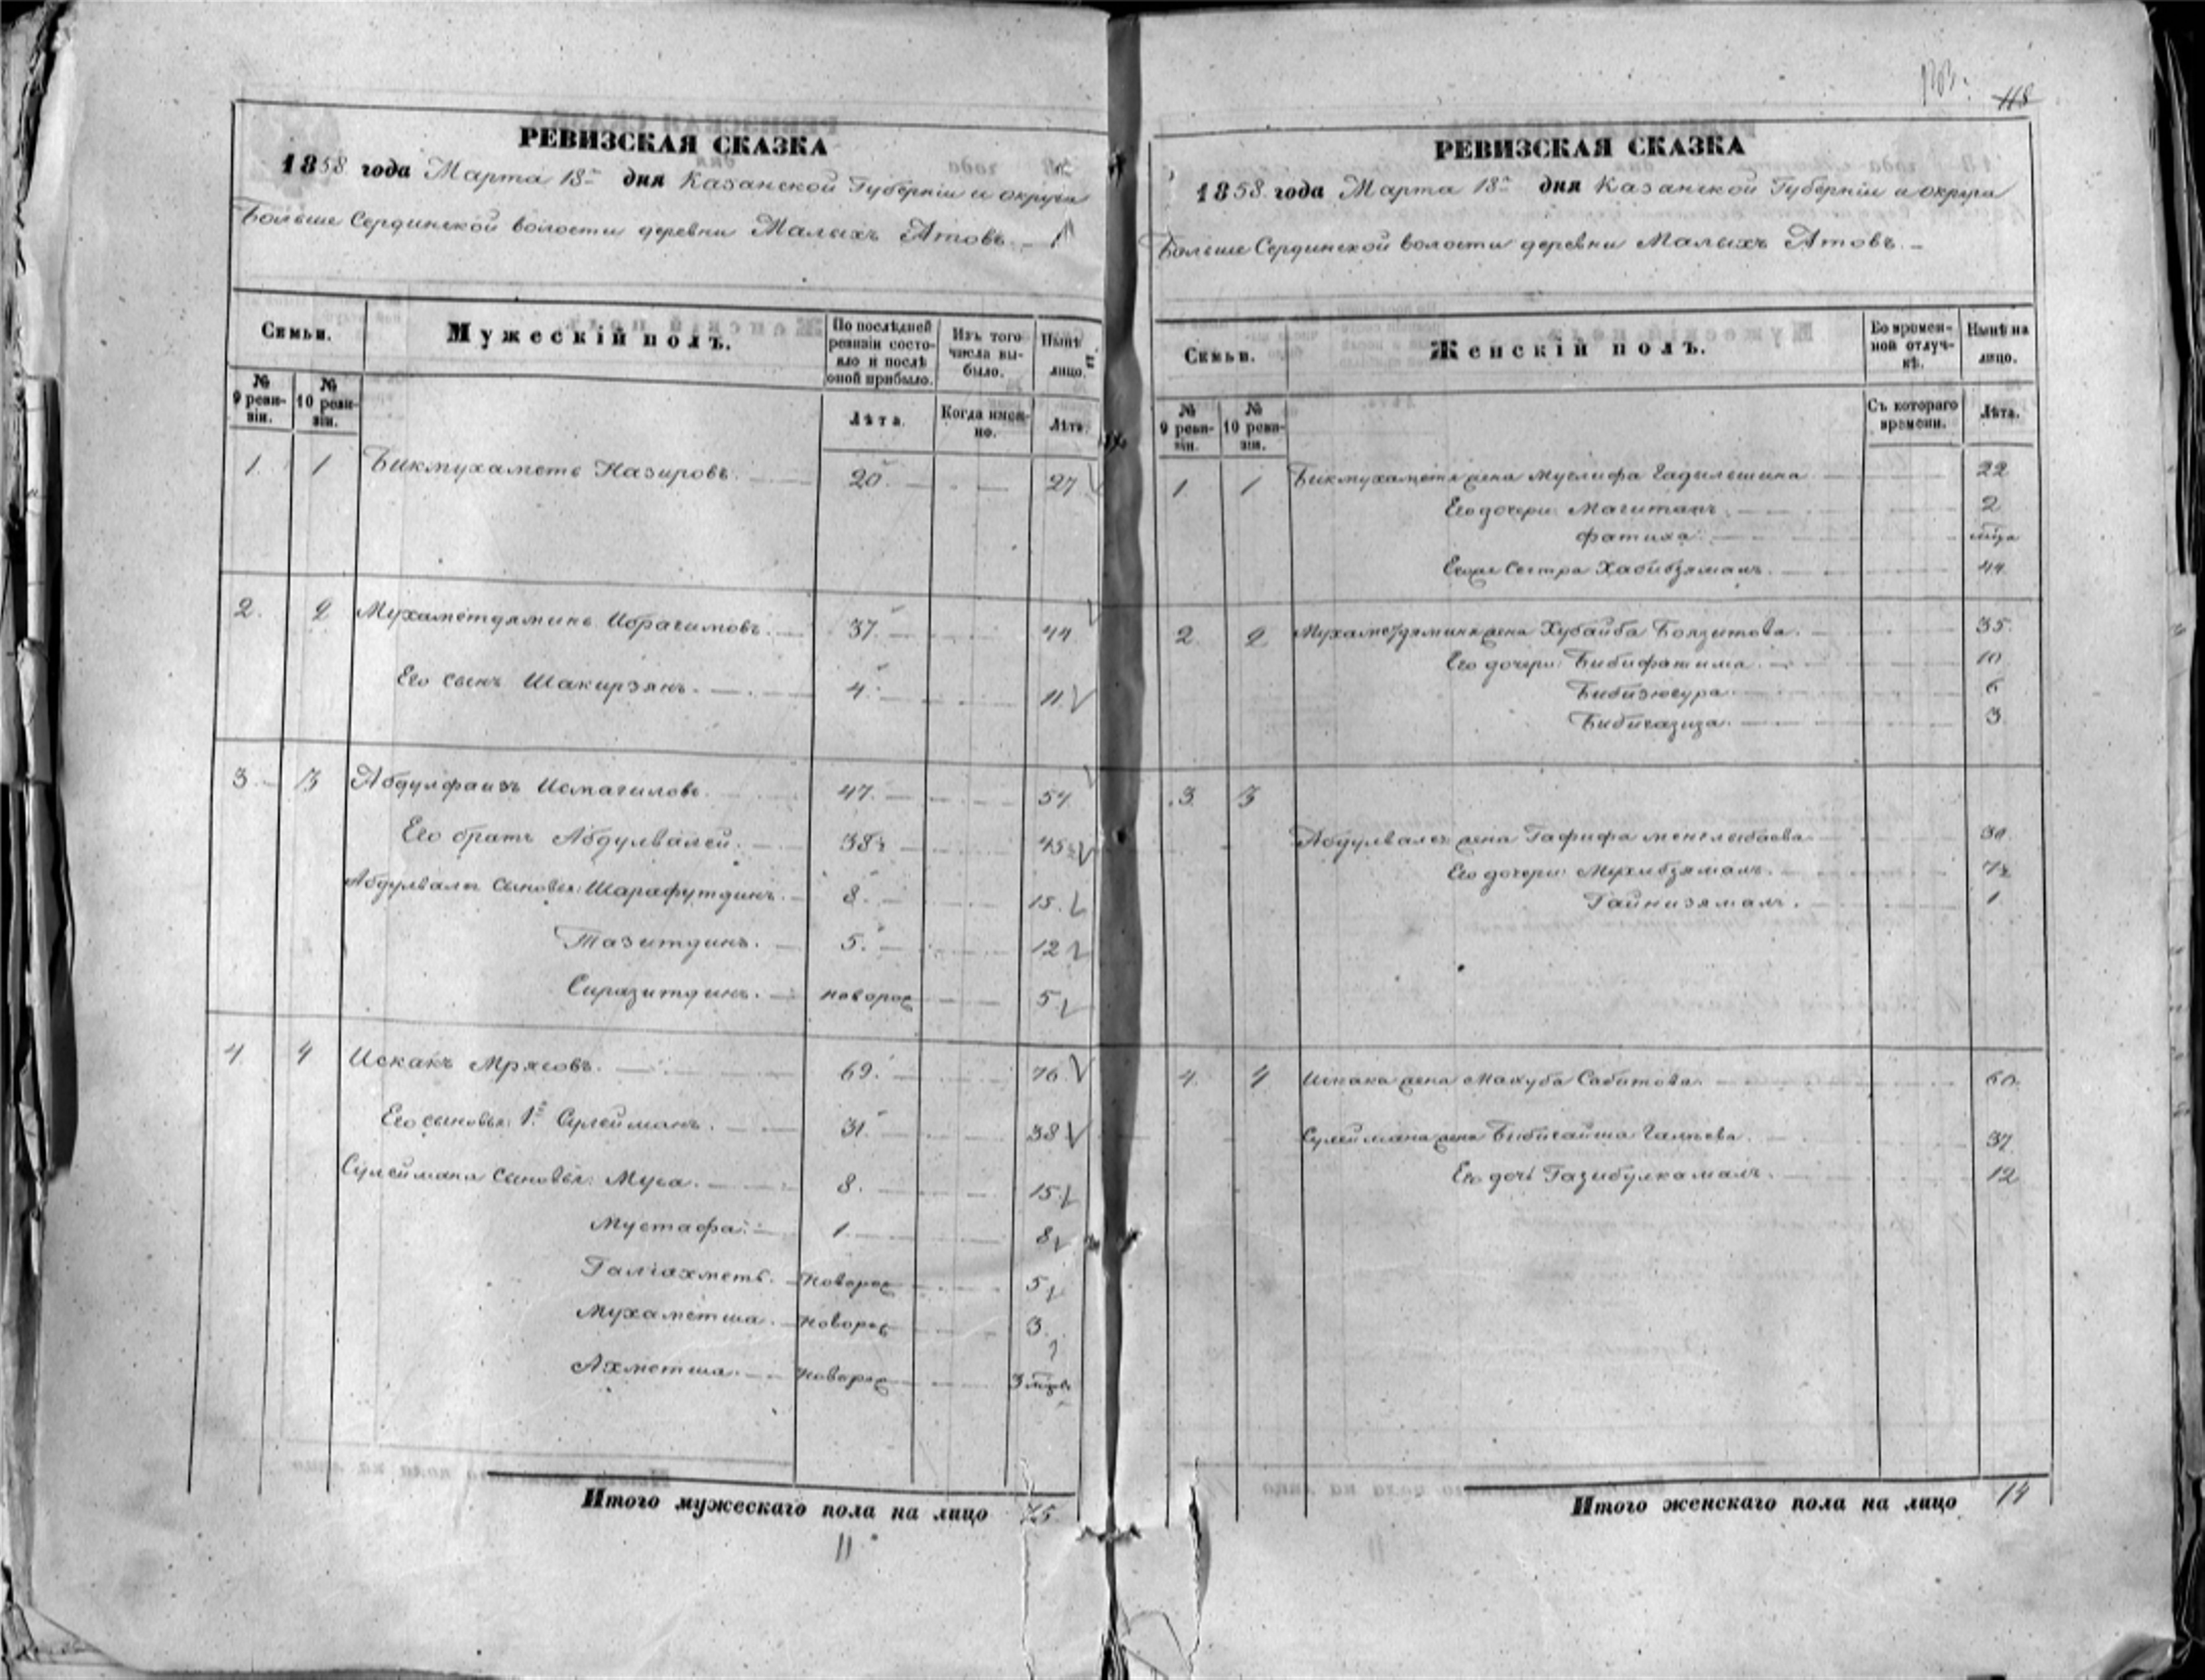 118
РЕВИЗСКАЯ СКАЗКА
1858 года Марта 18го дня Казанской Губерніи и округа
Больше Сердинской волости деревни Малыхъ Атовъ.
Семьи.
Мужескій полъ.
По послѣдней ревизіи состояло и послѣ оной прибыло.
Изъ того числа выбыло.
Нынѣ на лицо.
№ 9 ревизіи.
№ 10 ревизіи.
Лѣта.
Когда именно.
Лѣта.
1. 1 Бикмухаметъ Назировъ. 20 27
2. 2 Мухаметдяминъ Ибрагимовъ. 37. 44
Его сынъ Шакирзянъ. 4. 11
3 3 Абдулфаизъ Исмагиловъ. 47. 54
Его братъ Абдулвалей. 38½ 45½
Абдулвалея сыновья: Шарафутдинъ. 8. 15.
Тазитдинъ. 5. 12
Сиразитдинъ. новорож 5
4 4 Искакъ Мрясовъ. 69. 76.
Его сыновья: 1й Сулейманъ. 31. 38
Сулеймана сыновья: Муса. 8. 15.
Мустафа. 1. 8
Галіахметъ. новорож 5
Мухаметша. новорож 3.
Ахметша. новорож 3 мцов
Итого мужескаго пола на лицо 15
РЕВИЗСКАЯ СКАЗКА
1858 года Марта 18го дня Казанской Губерніи и округа
Больше Сердинской волости деревни Малыхъ Атовъ.
Семьи.
Женскій полъ.
Во временной отлучкѣ.
Нынѣ на лицо.
№ 9 ревизіи.
№ 10 ревизіи.
Съ котораго времени.
Лѣта.
1 1 Бикмухаметя жена Муглифа Гадильшина 22
Его дочери: Магитапъ. 2
Фатиха.
Его же Сестра Хабибзямалъ. 44
2. 2 Мухаметдямина жена Хубайба Боязитова. 35.
Его дочери: Бибифатима. 10
Бибизюгура. 6
Бибигазиза. 3
3 3
Абдулвалея жена Гафифа Менглыбаева 30.
Его дочери: Мухибзямалъ. 7½
Гайнизямалъ. 1
4. 4 Искака жена Махуба Сабитова. 60.
Сулеймана жена Бибигайша Галеева. 37
Его дочь Газибулкамалъ. 12
Итого женскаго пола на лицо 14